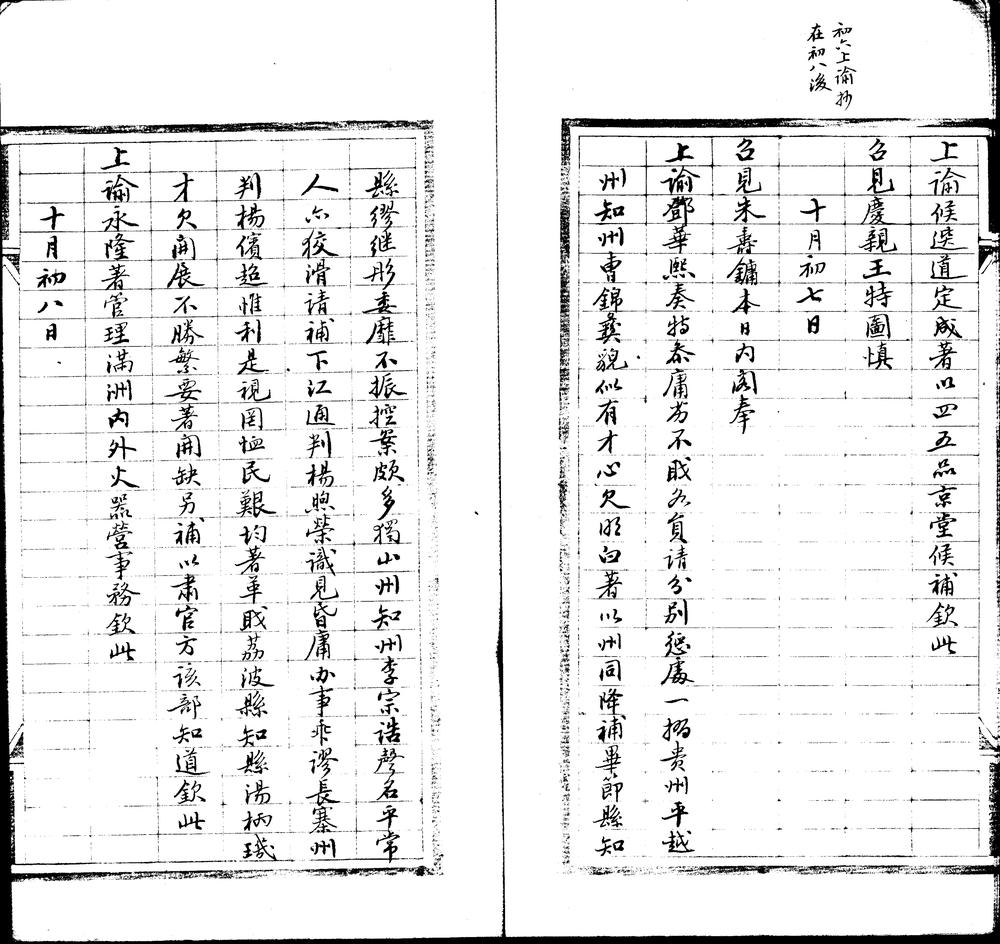 初六上諭抄
在初八後
上諭候選道定成著以四五品京堂候補欽此
召見慶親王特圖慎
十月初七日
召見朱壽鏞本日內閣奉
上諭鄧華熙奏特參庸劣不職各員請分別懲處一摺貴州平越
州知州曹錦彝貌似有才心欠明白著以州同降補畢節縣知
縣繆继彤委靡不振控案頗多獨山州知州李宗诰聲名平常
人亦狡滑請補下江通判楊煦榮識見昏庸办事乖謬長寨州
判楊儐超惟利是視罔恤民艱均著革職荔波縣知縣湯柄璣
才欠開展不勝繁要著開缺另補以肅官方該部知道欽此
上諭永隆著管理滿洲內外火器營事務欽此
十月初八日